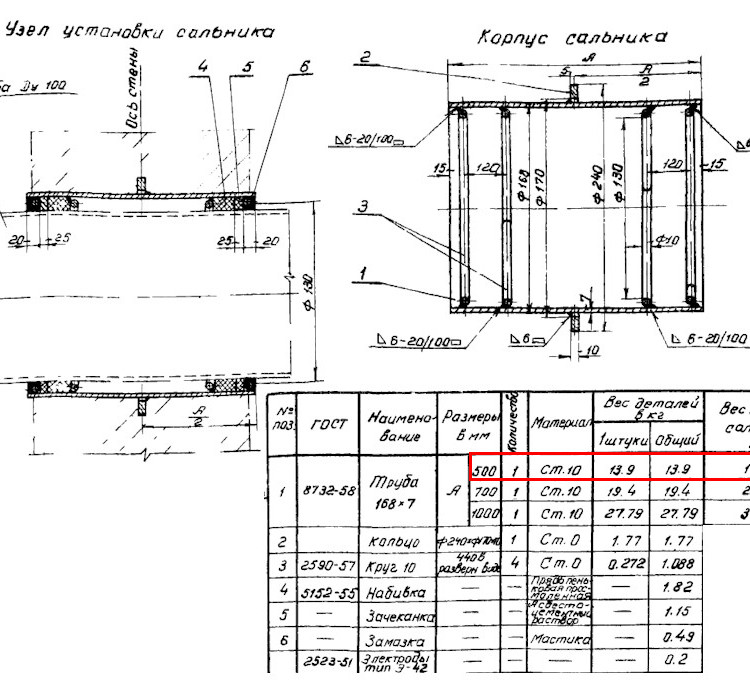 Узел установки сальника
Ду 100
Ось стены
4 5 6
20 25 25 20
ф 130
А
2
Корпус сальника
2
А
5 А
2
6-20/100
15 120 120 15
ф 168
ф 170
ф 240
ф 130
ф10
3
1
7
6-20/100 6 6-20/100
10
№ поз. ГОСТ Наименование Размеры в мм Количество Материал Вес деталей в кг Вес
1 штуки Общий
1 8732-58 Труба 168×7 А 500 1 Ст.10 13.9 13.9 1
700 1 Ст.10 19.4 19.4 2
1000 1 Ст.10 27.79 27.79 3
2 Кольцо 1 Ст.0 1.77 1.77
3 2590-57 Круг 10 440 в разверн виде 4 Ст.0 0.272 1.088
4 5152-55 Набивка — — — 1.82
5 — Зачеканка — — Асбесто-цементный раствор — 1.15
6 — Замазка — — Мастика — 0.49
2523-51 Электроды тип Э-42 — — — — 0.2